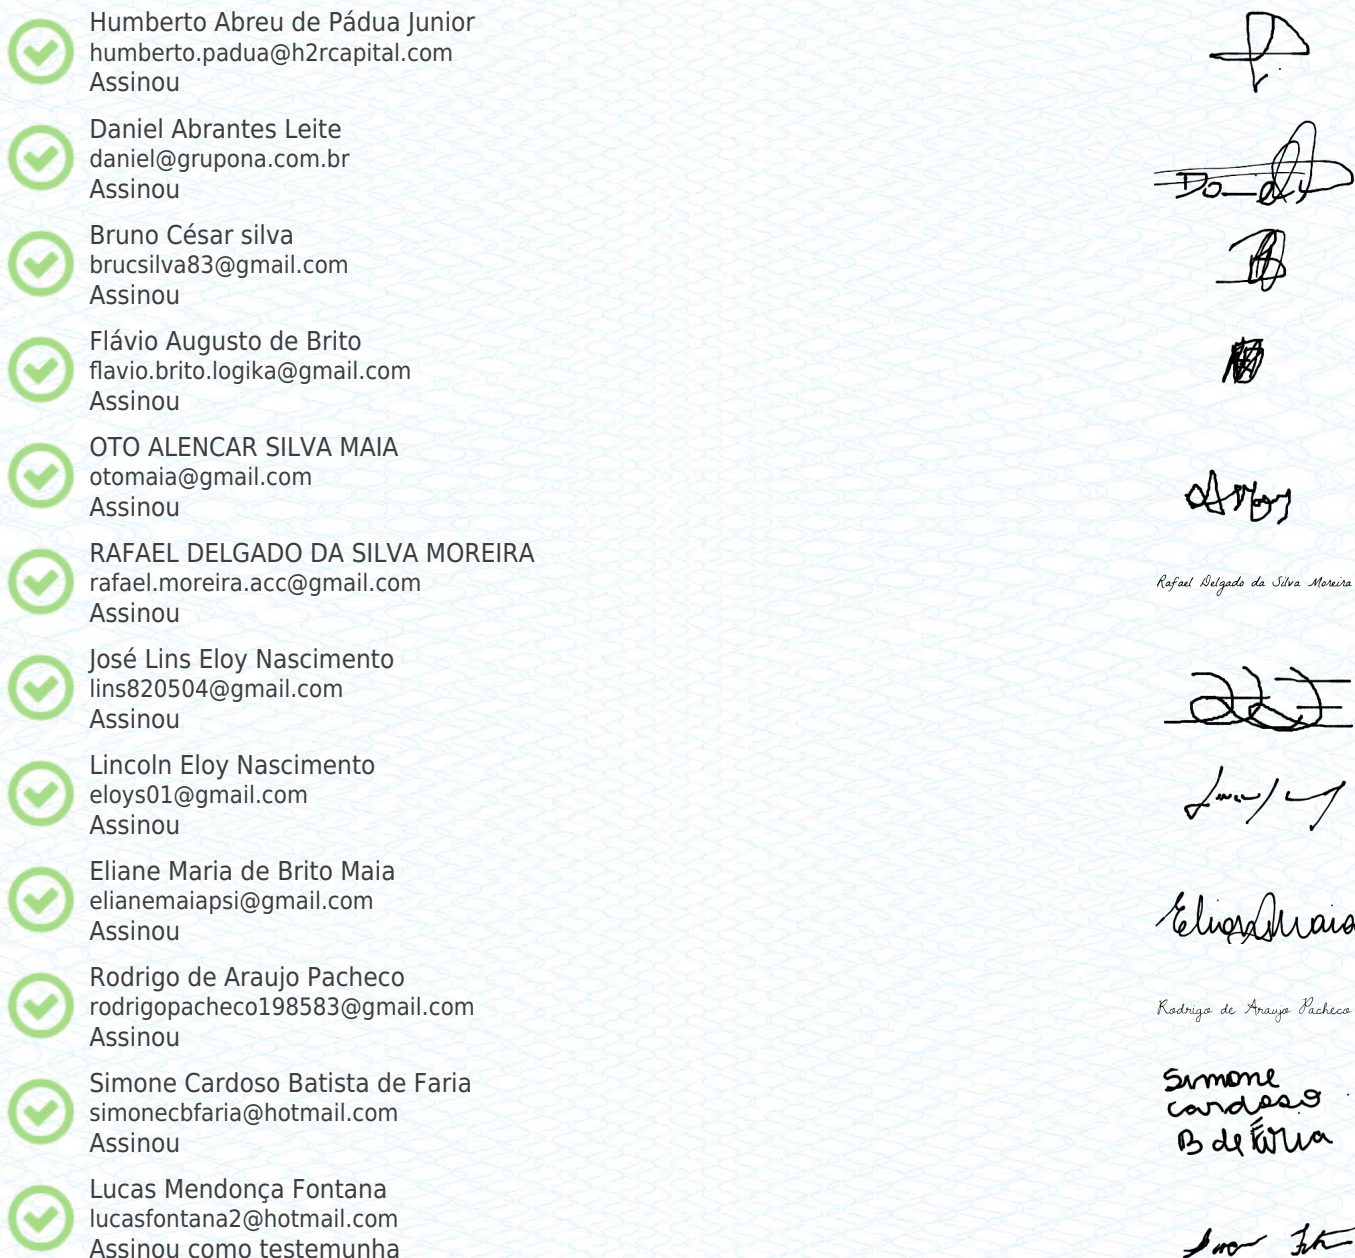 Humberto Abreu de Pádua Junior
humberto.padua@h2rcapital.com
Assinou
Daniel Abrantes Leite
daniel@grupona.com.br
Assinou
Bruno César silva
brucsilva83@gmail.com
Assinou
Flávio Augusto de Brito
flavio.brito.logika@gmail.com
Assinou
OTO ALENCAR SILVA MAIA
otomaia@gmail.com
Assinou
RAFAEL DELGADO DA SILVA MOREIRA
rafael.moreira.acc@gmail.com
Rafael Delgado da Silva Moreira
Assinou
José Lins Eloy Nascimento
lins820504@gmail.com
Assinou
Lincoln Eloy Nascimento
eloys01@gmail.com
Assinou
Eliane Maria de Brito Maia
elianemaiapsi@gmail.com
Assinou
Rodrigo de Araujo Pacheco
rodrigopacheco198583@gmail.com
Rodrigo de Araujo Pacheco
Assinou
Simone Cardoso Batista de Faria
simonecbfaria@hotmail.com
Assinou
Simone
cardoso
B de Faria
Lucas Mendonça Fontana
lucasfontana2@hotmail.com
Assinou como testemunha